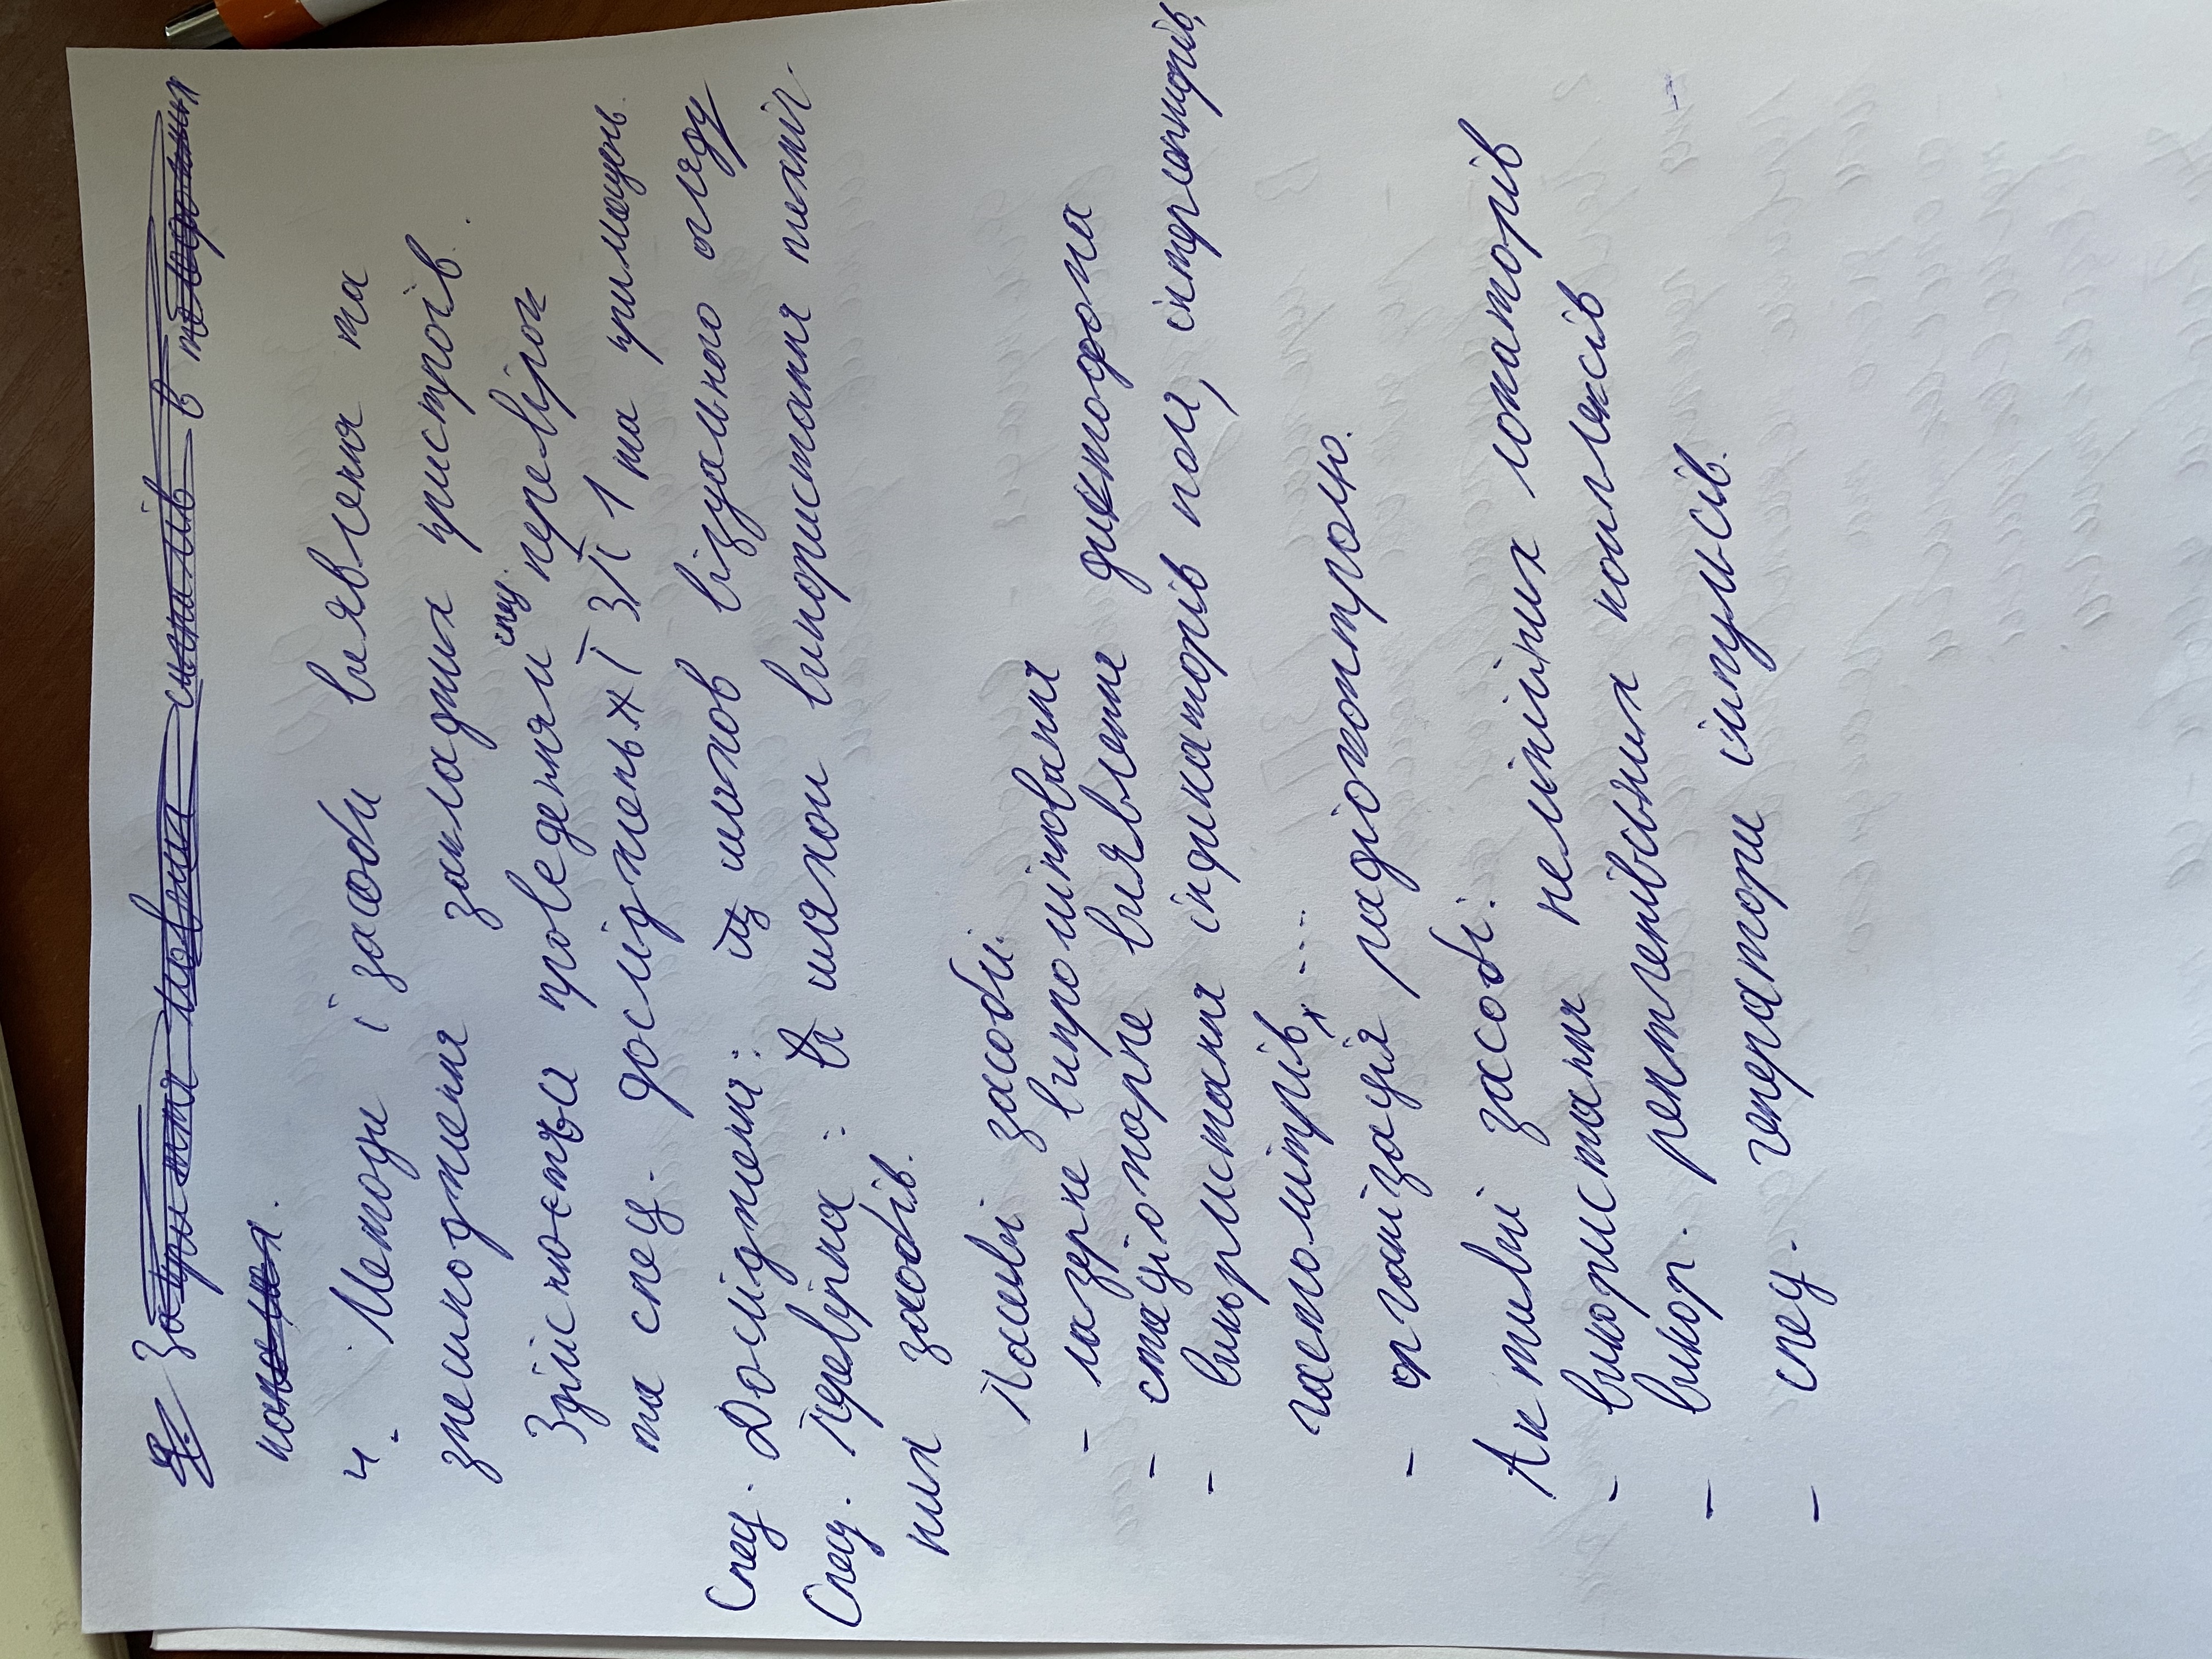 4. Закриття мовних сигналів в телефонних
каналах.
4. Методи і засоби виявлення та
знешкодження закладних пристроїв.
Здійснюється проведенням спец. перевірок
та спец. досліджень ТЗПІ та приміщень.
Спец. Дослідження: шляхов візуального огляду
Спец. Перевірка: шляхом використання техніч-
них засобів.
Пасивні засоби:
- лазерне випромінювання
- стаціонарне виявлення диктофона
- використання індикаторів поля, інтерсепторів,
частомітрів, ....
- організація радіоконтролю.
Активні засобі:
- використання нелінійних локаторів
- викор. рентгенівських комплексів
- спец. генератори імпульсів.